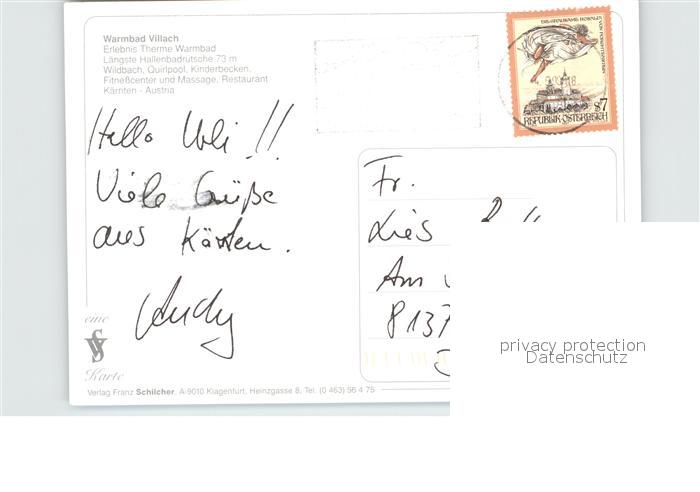 Warmbad Villach
Erlebnis Therme Warmbad
Längste Hallenbadrutsche 73 m
Wildbach, Quirlpool, Kinderbecken,
Fitneßcenter und Massage, Restaurant
Kärnten - Austria
Hallo Uli !!
Viele Grüße
aus Kärnten.
Andy
eine
Karte
Verlag Franz Schilcher, A-9010 Klagenfurt, Heinzgasse 8, Tel. (0 463) 56 4 75
S7
REPUBLIK ÖSTERREICH
Fr.
Lies
Am
8137
privacy protection
Datenschutz